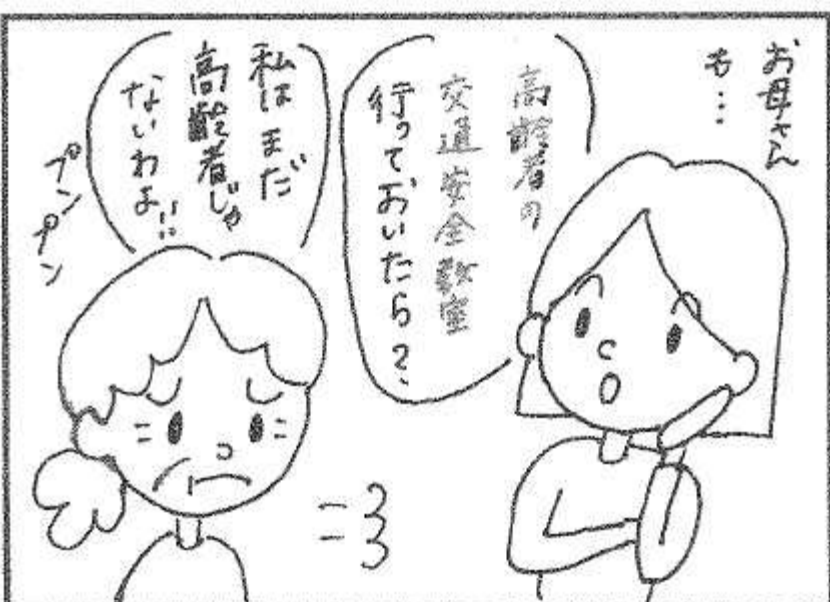 お母さん
も…
高齢者の
交通安全教室
行っておいたら?、
私はまだ
高齢者じゃ
ないわよ!!
プンプン